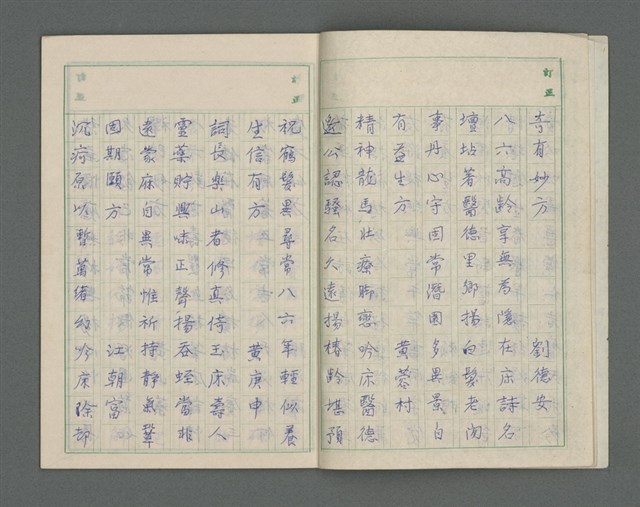 訂正
有妙方　劉德安
八六高齡享無為隱在床詩名
壇坫著醫德里鄉揚白髮老尚
事丹心守固常潛園多異景自
有益生方　黃村
精神龍馬壯療脚戀吟床醫德
公認騷名久遠揚椿齡堪預
訂正
祝鶴髮異尋常八六年輕似養
生信有方　黃庚申
詞長樂山者修真侍玉床壽人
靈藥貯興味正聲揚吞蛭當非
遠蒙庥自異常惟祈持靜氣鞏
固期頤方　江朝富
沉疴原以暫舊緒約吟床除却